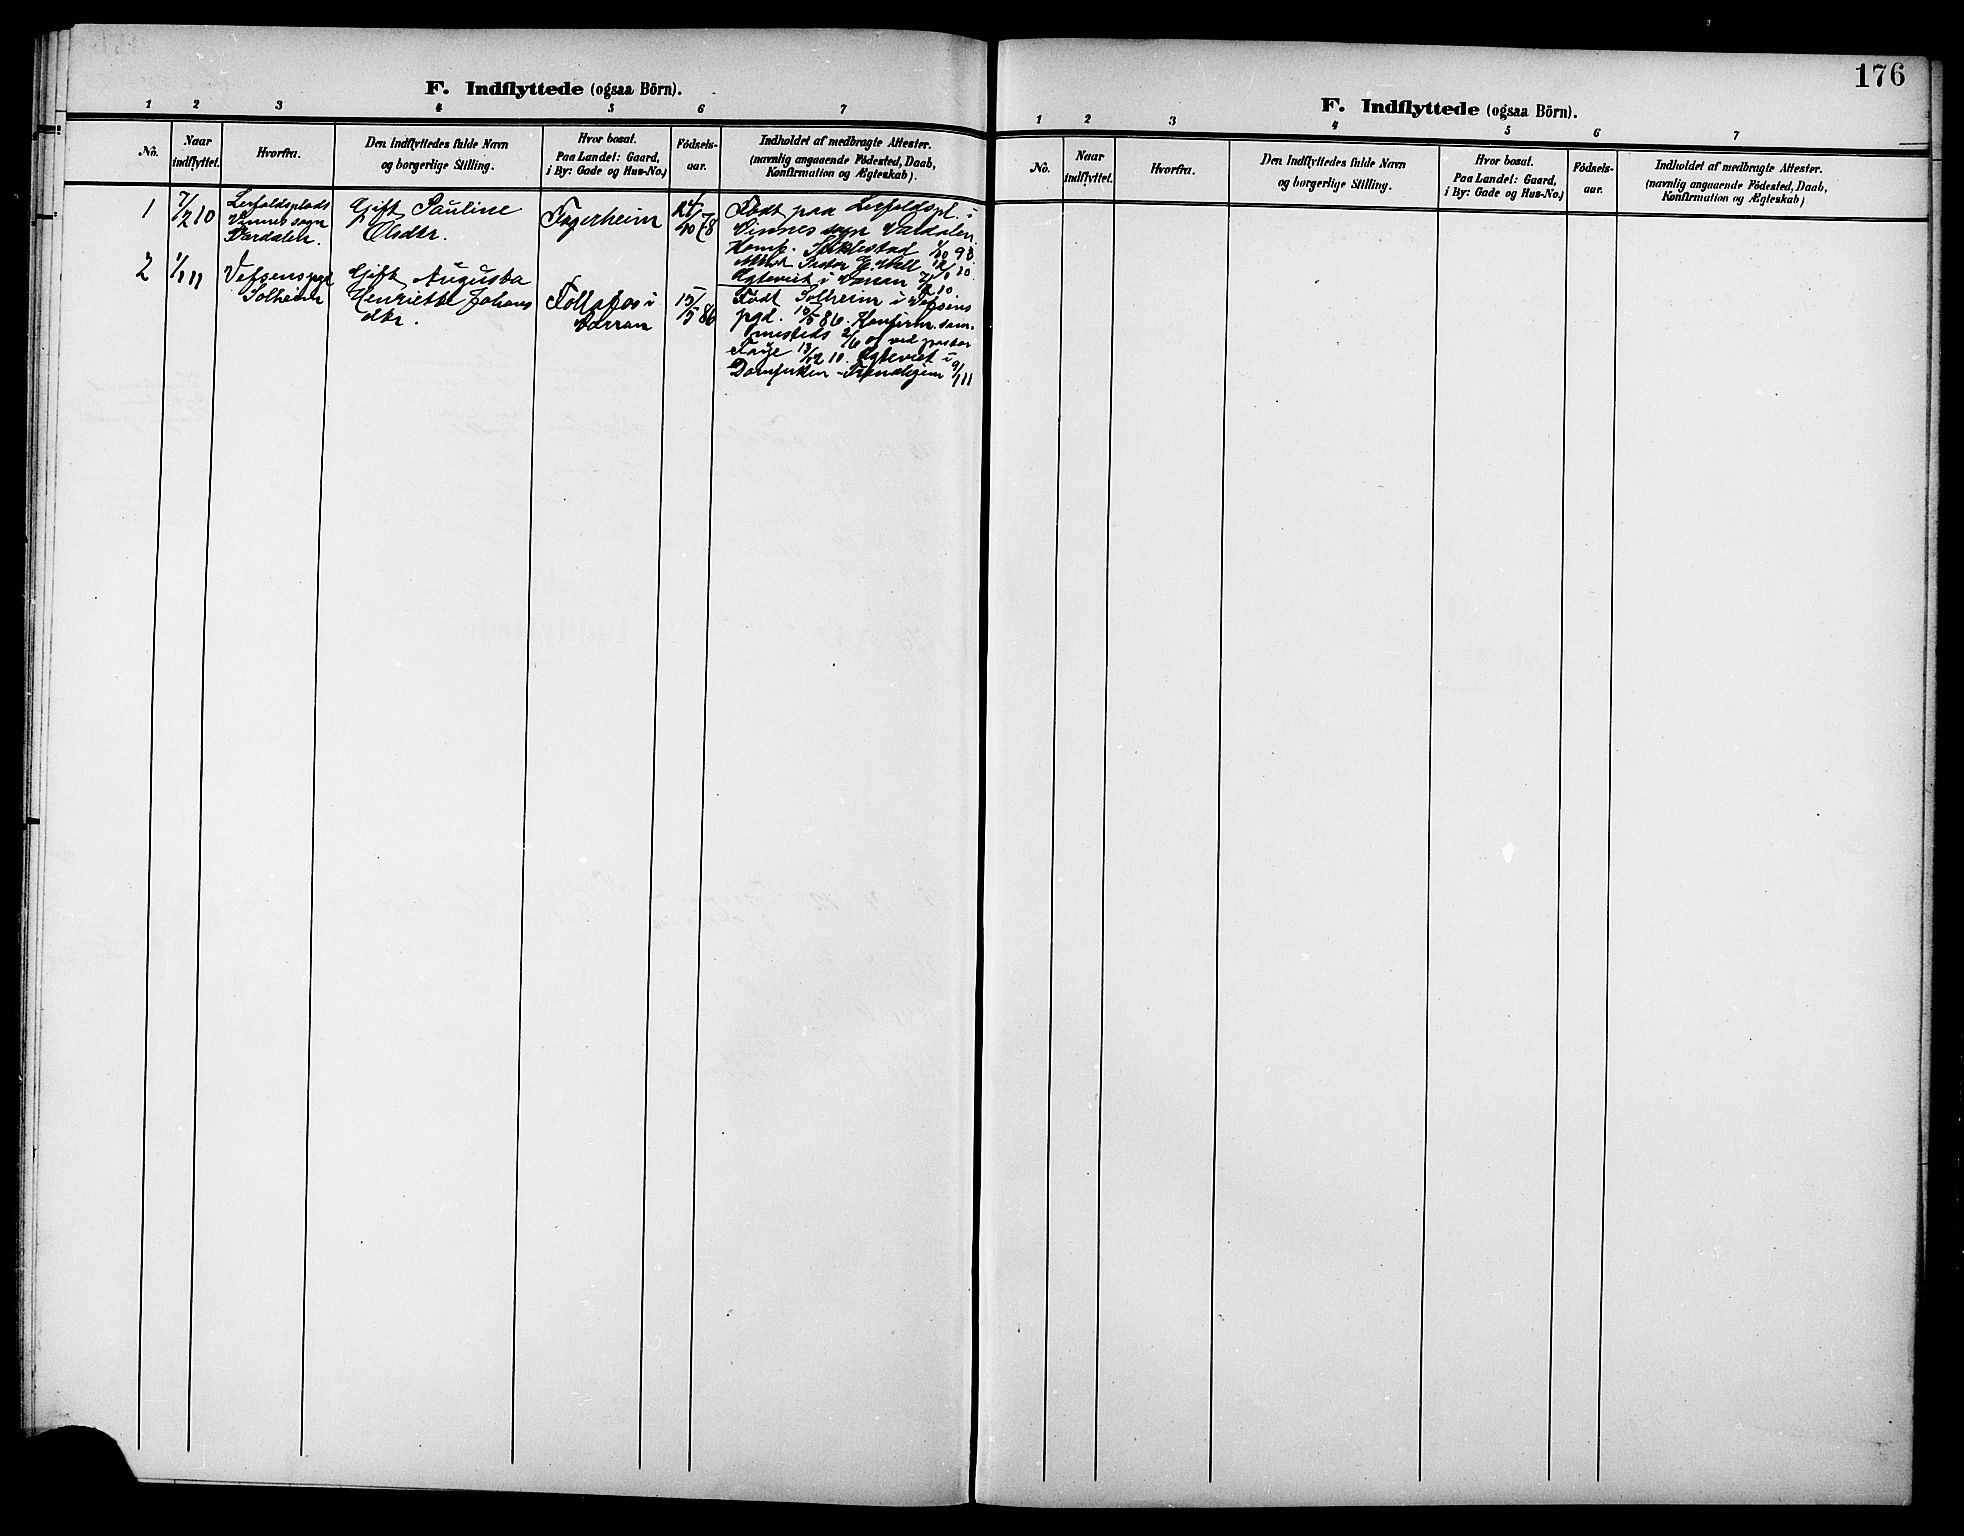 F. Indflyttede (ogsaa Börn).
1 2 3 4 5 6 7
No.
Naar
indflyttet.
Hvorfra.
Den Indflyttedes fulde Navn
og borgerlige Stilling.
Hvor bosat.
Paa Landet: Gaard,
i By: Gade og Hus-No.)
Födsels-
aar.
Indholdet af medbragte Attester.
(navnlig angaaende Födested, Daab,
Konfirmation og Ægteskab).
1
7/2 10
Leofoldsplads
Vinnes sogn
Værdalen.
Gift Pauline
Olsdtr.
Fagerheim
24/10 78
Födt paa Leofoldspl. i
Vinnes sogn Værdalen.
Stiklestad 1/10 93.
2
1/1 11
Vefsens pgd
Solheim
Gift Augusta
Henriette Johans
dtr.
Follafos i
Værran
15/5 86
Födt Solheim i Vefsens
pgd. 15/5 86. Konfirm. sam-
mesteds ved pastor
Ægteviet i
Domkirken - Trondhjem 9/1 11
176
F. Indflyttede (ogsaa Börn).
1 2 3 4 5 6 7
No.
Naar
indflyttet.
Hvorfra.
Den Indflyttedes fulde Navn
og borgerlige Stilling.
Hvor bosat.
Paa Landet: Gaard,
i By: Gade og Hus-No.)
Födsels-
aar.
Indholdet af medbragte Attester.
(navnlig angaaende Födested, Daab,
Konfirmation og Ægteskab)